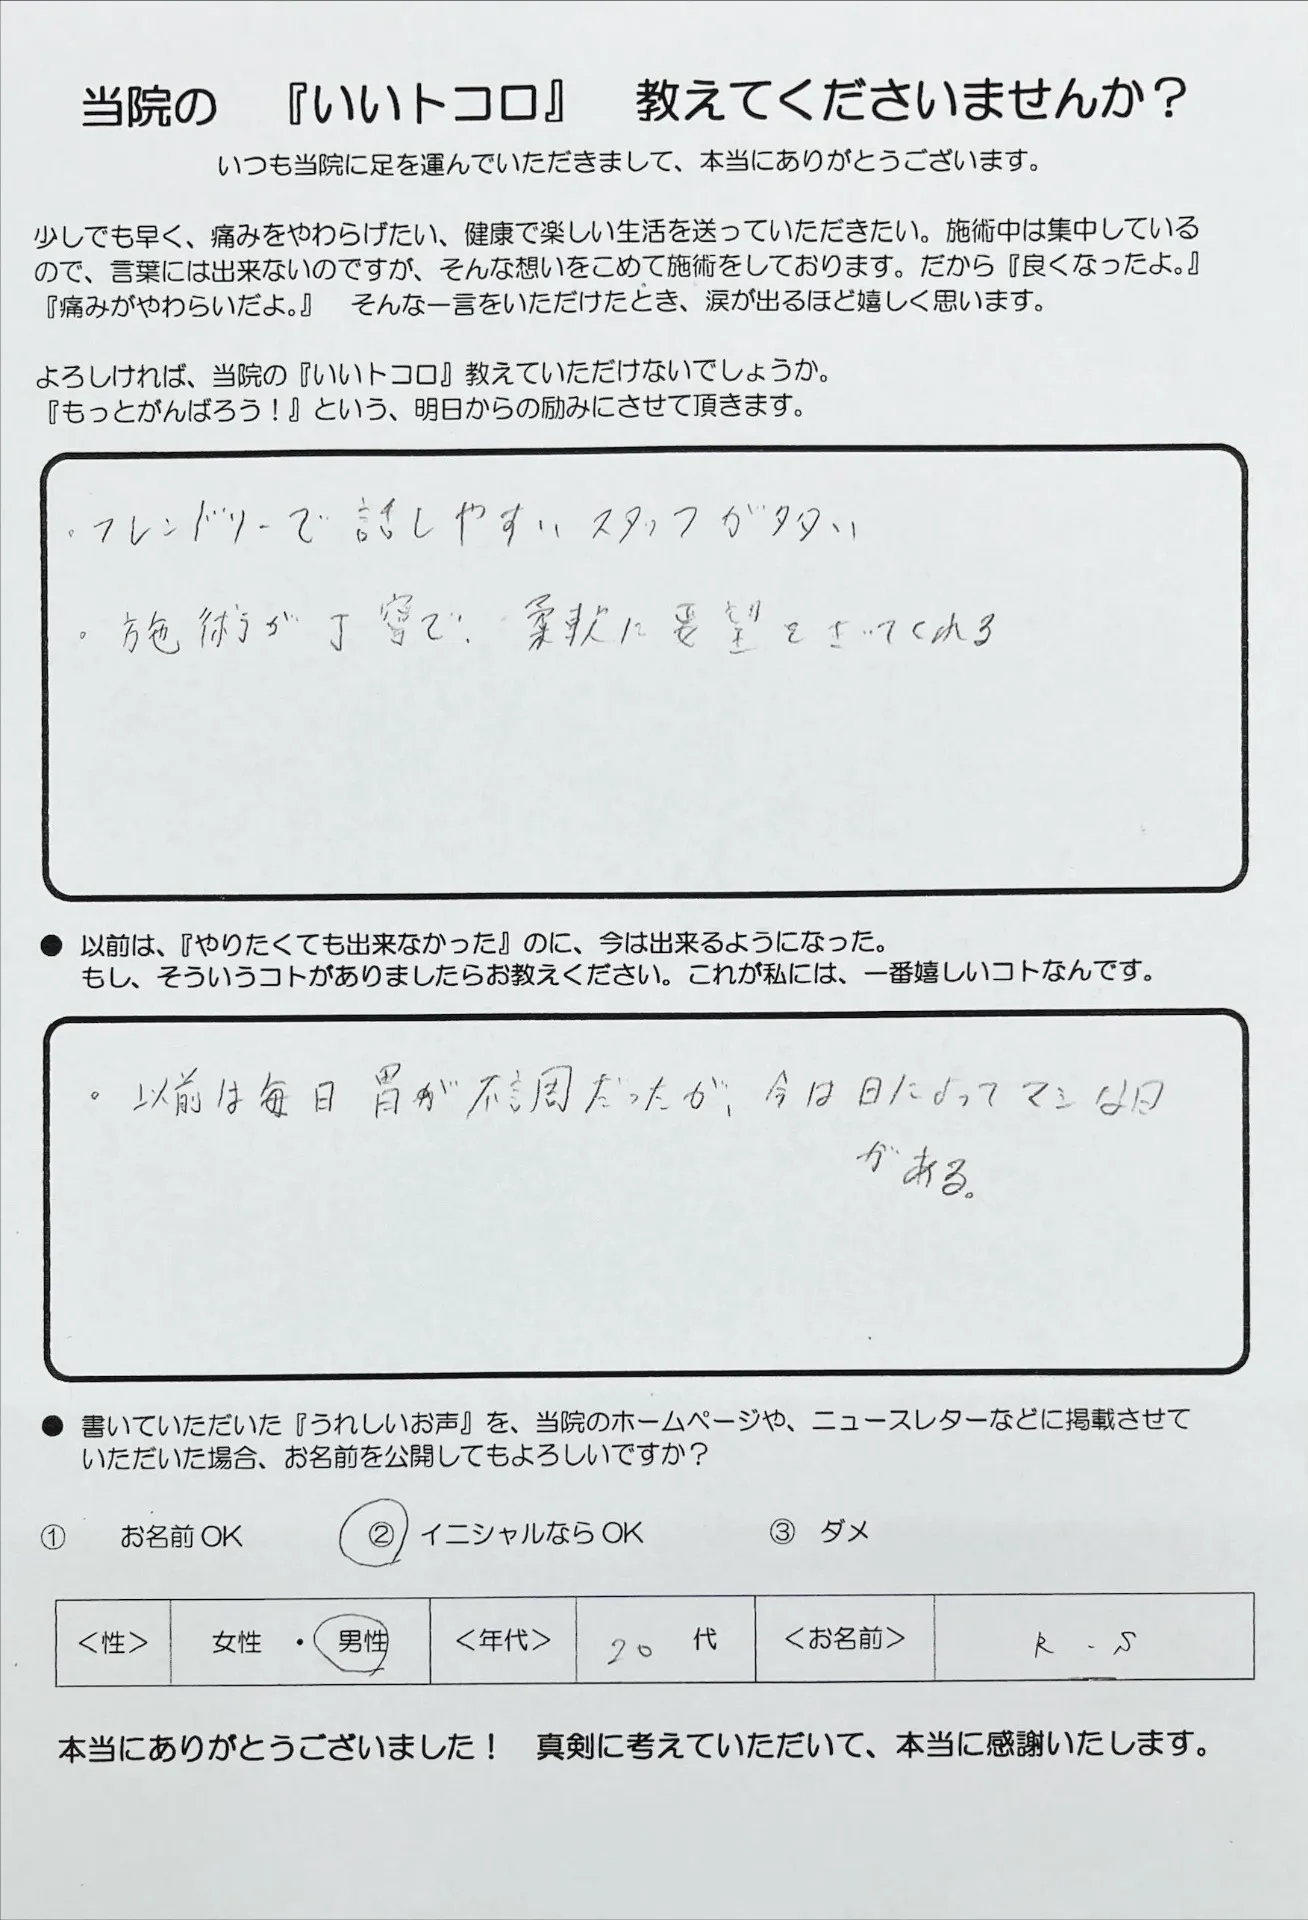 当院の 『いいトコロ』 教えてくださいませんか？
いつも当院に足を運んでいただきまして、本当にありがとうございます。
少しでも早く、痛みをやわらげたい、健康で楽しい生活を送っていただきたい。施術中は集中している
ので、言葉には出来ないのですが、そんな想いをこめて施術をしております。だから『良くなったよ。』
『痛みがやわらいだよ。』 そんな一言をいただけたとき、涙が出るほど嬉しく思います。
よろしければ、当院の『いいトコロ』教えていただけないでしょうか。
『もっとがんばろう！』という、明日からの励みにさせて頂きます。
・フレンドリーで話しやすいスタッフが多い
・施術が丁寧で、柔軟に要望をきいてくれる
● 以前は、『やりたくても出来なかった』のに、今は出来るようになった。
もし、そういうコトがありましたらお教えください。これが私には、一番嬉しいコトなんです。
・以前は毎日胃が不調だったが、今は日によってマシな日
がある。
● 書いていただいた『うれしいお声』を、当院のホームページや、ニュースレターなどに掲載させて
いただいた場合、お名前を公開してもよろしいですか？
① お名前OK ② イニシャルならOK ③ ダメ
＜性＞ 女性 ・ 男性 ＜年代＞ 20 代 ＜お名前＞ K . S
本当にありがとうございました！ 真剣に考えていただいて、本当に感謝いたします。